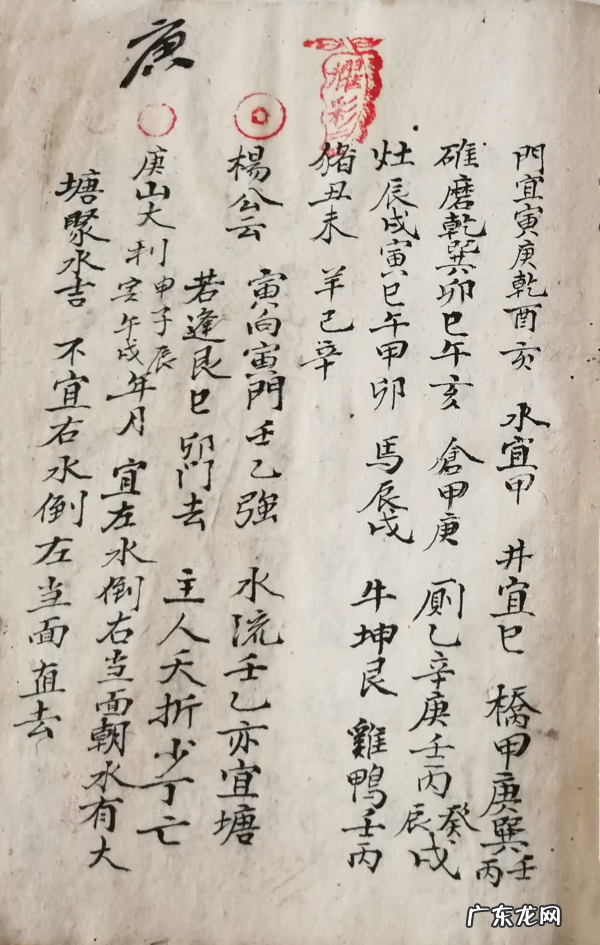 門宜寅庚乾酉亥 水宜甲 井宜巳 橋甲庚巽壬丙
碓磨乾巽卯巳午亥 倉甲庚 厠乙辛庚壬丙癸辰戌
灶辰戌寅巳午甲卯 馬辰戌 牛坤艮 雞鴨壬丙
猪丑未 羊己辛
楊公云 寅向寅門壬乙強 水流壬乙亦宜塘
若逢艮巳卯門去 主人夭折少丁亡
庚
庚山大利申子辰寅午戌年月 宜左水倒右当面朝水有大
塘聚水吉 不宜右水倒左当面直去
耀彩
广东龙网